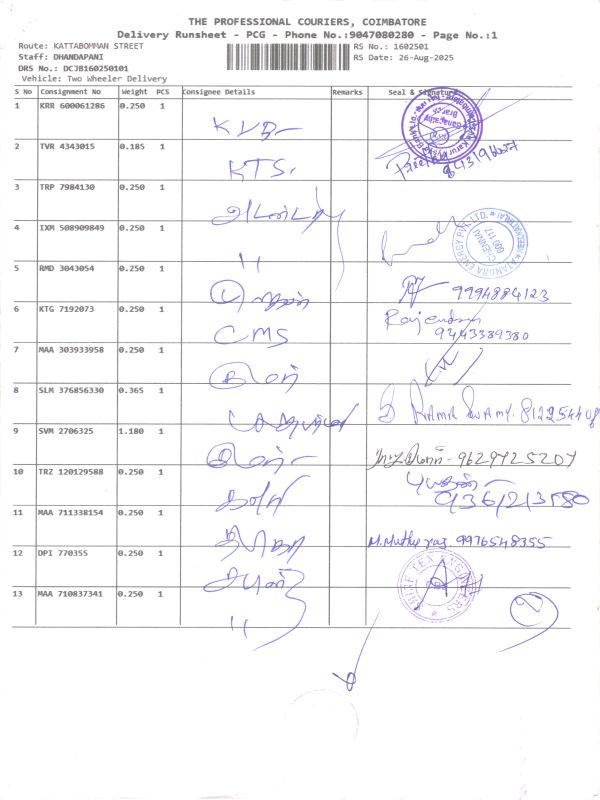 THE PROFESSIONAL COURIERS, COIMBATORE
Delivery Runsheet - PCG - Phone No.:9047080280 - Page No.:1
Route: KATTABOMMAN STREET
RS No.: 1602501
Staff: DHANDAPANI
RS Date: 26-Aug-2025
DRS No.: DCJB160250101
Vehicle: Two Wheeler Delivery
S No Consignment No Weight PCS Consignee Details Remarks Seal & Signature
1 KRR 600061286 0.250 1
KVB
2 TVR 4343015 0.185 1
KTS.
3 TRP 7984130 0.250 1
4 IXM 508909849 0.250 1
ENERGY PVT. LTD.
CHENNAI
600 117
"
5 RMD 3043054 0.250 1
9994884123
6 KTG 7192073 0.250 1
Rajendran
9443389380
CMS
7 MAA 303933958 0.250 1
8 SLM 376856330 0.365 1
RAMA SWAMY.
9 SVM 2706325 1.180 1
9629725207
10 TRZ 120129588 0.250 1
9361213580
11 MAA 711338154 0.250 1
M.Muthu raj. 9976548355
12 DPI 770355 0.250 1
13 MAA 710837341 0.250 1
"